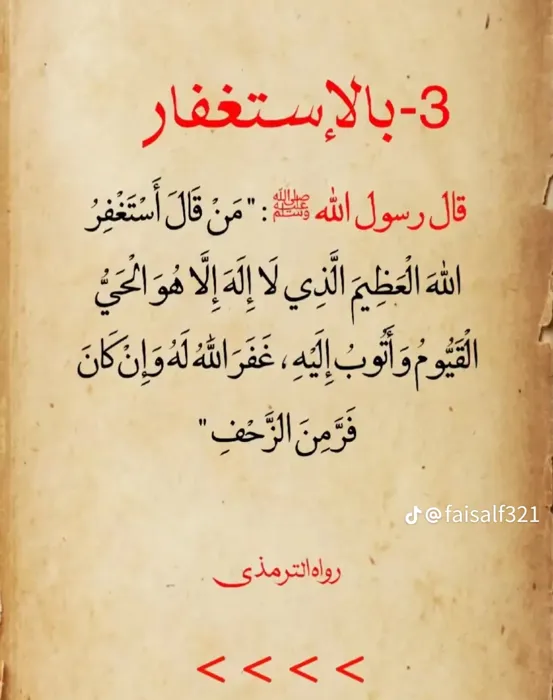 3-بالإستغفار
قال رسول الله ﷺ : "مَنْ قَالَ أَسْتَغْفِرُ
اللهَ الْعَظِيمَ الَّذِي لَا إِلَهَ إِلَّا هُوَ الْحَيُّ
الْقَيُّومُ وَأَتُوبُ إِلَيْهِ، غَفَرَ اللَّهُ لَهُ وَإِنْ كَانَ
فَرَّ مِنَ الزَّحْفِ"
@faisalf321
رواه الترمذي
< < < <